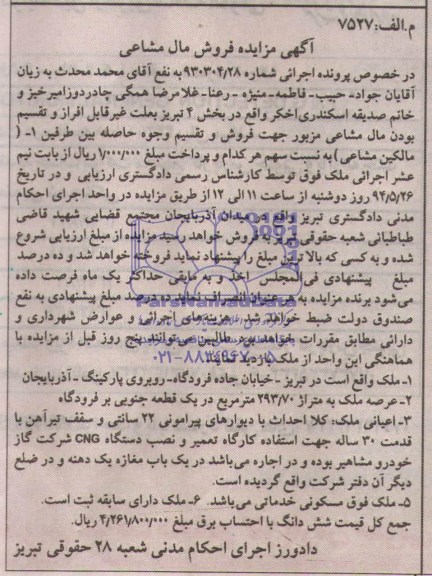 م.الف:۷۵۲۷
آگهی مزایده فروش مال مشاعی
در خصوص پرونده اجرائی شماره ۹۳۰۳۰۴/۲۸ به نفع آقای محمد محدث به زیان
آقایان جواد- حبیب- فاطمه- منیژه - رعنا- غلامرضا همگی چادردوزامیرخیز و
خانم صدیقه اسکندری اخگر واقع در بخش ۴ تبریز بعلت غیرقابل افراز و تقسیم
بودن مال مشاعی مزبور جهت فروش و تقسیم وجوه حاصله بین طرفین ۱- (
مالکین مشاعی) به نسبت سهم هر کدام و پرداخت مبلغ ۷/۰۰۰/۰۰۰ ریال از بابت نیم
عشر اجرائی ملک فوق توسط کارشناس رسمی دادگستری ارزیابی و در تاریخ
۹۴/۵/۲۶ روز دوشنبه از ساعت ۱۱ الی ۱۲ از طریق مزایده در واحد اجرای احکام
مدنی دادگستری تبریز واقع در میدان آذربایجان مجتمع قضایی شهید قاضی
طباطبائی شعبه حقوقی تبریز به فروش خواهد رسید مزایده از مبلغ ارزیابی شروع
شده و به کسی که بالاترین مبلغ را پیشنهاد نماید فروخته خواهد شد و ده درصد
مبلغ پیشنهادی فی المجلس اخذ و به مابقی حداکثر یک ماه فرصت داده
می‌شود برنده مزایده به هر عنوان انصراف ده درصد مبلغ پیشنهادی به نفع
صندوق دولت ضبط خواهد شد. هزینه‌های اجرائی و عوارض شهرداری و
دارائی مطابق مقررات خواهد بود. طالبین می‌توانند پنج روز قبل از مزایده با
هماهنگی این واحد از ملک بازدید نمایند.
۰۲۱-۸۸۳۴۹۶۷۰-۵
۱- ملک واقع است در تبریز - خیابان جاده فرودگاه- روبروی پارکینگ - آذربایجان
۲- عرصه ملک به متراژ ۲۹۳/۷۰ مترمربع در یک قطعه جنوبی بر فرودگاه
۳- اعیانی ملک: کلا احداث با دیوارهای پیرامونی ۲۲ سانتی و سقف تیرآهن با
قدمت ۳۰ ساله جهت استفاده کارگاه تعمیر و نصب دستگاه CNG شرکت گاز
خودرو مشاهیر بوده و در اجاره می‌باشد در یک باب مغازه یک دهنه و در ضلع
دیگر آن دفتر شرکت واقع گردیده است.
۵- ملک فوق مسکونی خدماتی می‌باشد. ۶- ملک دارای سابقه ثبت است.
جمع کل قیمت شش دانگ با احتساب برق مبلغ ۴/۲۶۱/۸۰۰/۰۰۰ ریال.
دادورز اجرای احکام مدنی شعبه ۲۸ حقوقی تبریز